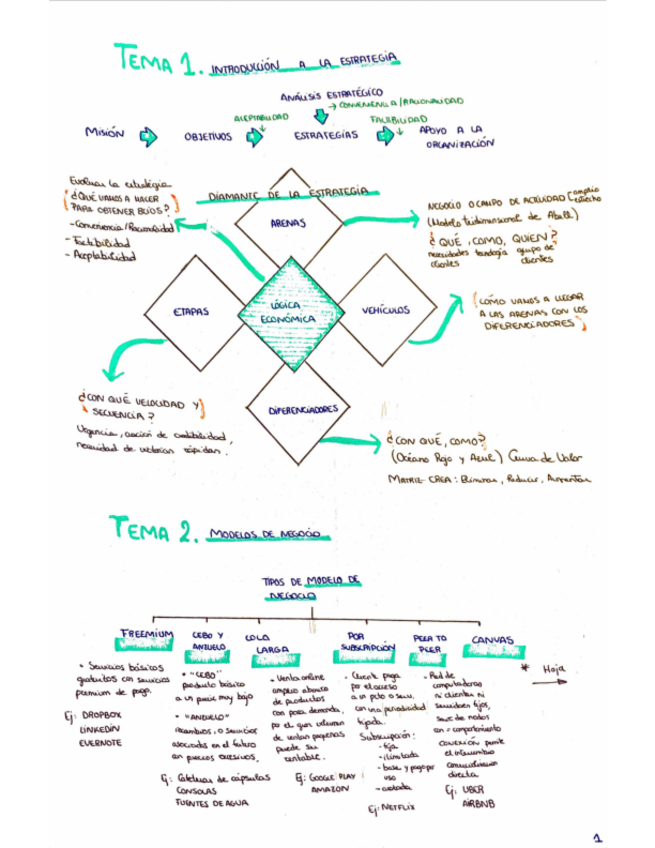 TEMA 1. INTRODUCCIÓN A LA ESTRATEGIA
ANÁLISIS ESTRATÉGICO
→ CONVENIENCIA/RACIONALIDAD
ACEPTABILIDAD
FACTIBILIDAD
MISIÓN
OBJETIVOS
ESTRATEGIAS
APOYO A LA
ORGANIZACIÓN
DIAMANTE DE LA ESTRATEGIA
Evaluar la estrategia
(¿QUÉ VAMOS A HACER
PARA OBTENER BºIOS?)
- Conveniencia/Racionalidad
- Factibilidad
- Aceptabilidad
ARENAS
NEGOCIO O CAMPO DE ACTIVIDAD [amplio
estrecho
(Modelo tridimensional de Abell)
¿QUÉ, COMO, QUIEN?
necesidades tecnología grupo de
clientes clientes
ETAPAS
LÓGICA
ECONÓMICA
VEHÍCULOS
(CÓMO VAMOS A LLEGAR
A LAS ARENAS CON LOS
DIFERENCIADORES)
¿CON QUÉ VELOCIDAD Y
SECUENCIA?
Urgencia, acción de credibilidad,
necesidad de victorias rápidas.
DIFERENCIADORES
¿CON QUÉ, COMO?
(Océano Rojo y Azul) Curva de Valor
MATRIZ CREA: Eliminar, Reducir, Aumentar
TEMA 2. MODELOS DE NEGOCIO
TIPOS DE MODELO DE
NEGOCIO
FREEMIUM
• Servicios básicos
gratuitos con servicios
premium de pago.
Ej: DROPBOX
LINKEDIN
EVERNOTE
CEBO Y
ANZUELO
• "CEBO"
producto básico
a un precio muy bajo
• "ANZUELO"
recambios, o servicios
asociados en el futuro
con precios excesivos.
Ej: Cafeteras de cápsulas
CONSOLAS
FUENTES DE AGUA
COLA
LARGA
• Venta online
amplio abanico
de productos
con poca demanda,
por el gran volumen
de ventas pequeñas
puede ser
rentable.
Ej: GOOGLE PLAY
AMAZON
POR
SUBSCRIPCIÓN
• Cliente paga
por el acceso
a un pcto o serv.
con una periodicidad
fijada.
Subscripción:
- fija
- ilimitada
- base y pago por
uso
- acotada
Ej: NETFLIX
PEER TO
PEER
• Red de
computadoras
ni clientes ni
servidores fijos,
serie de nodos
con = comportamiento
CONEXIÓN permite
el intercambio
comunicación
directa
Ej: UBER
AIRBNB
CANVAS
* Hoja
1